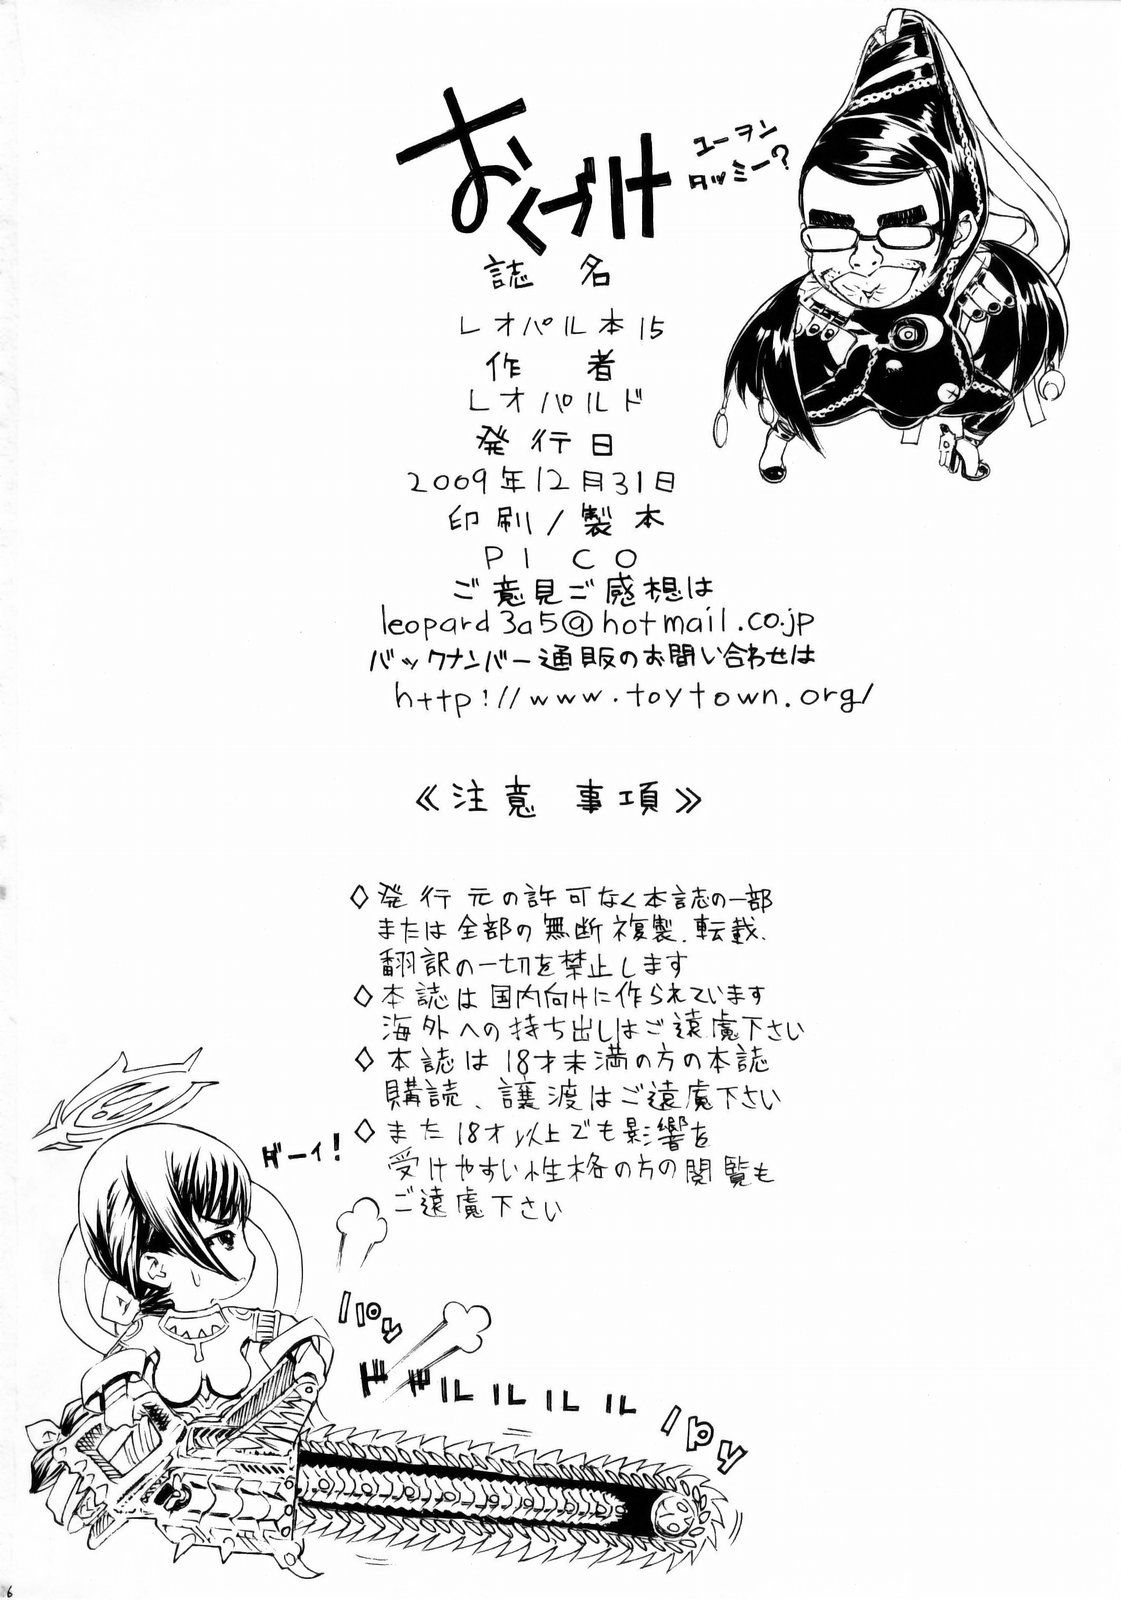 おくづけ
ユーヲン
タッミー?
誌名
レオパル本15
作者
レオパルド
発行日
2009年12月31日
印刷/製本
PICO
ご意見ご感想は
leopard3a5@hotmail.co.jp
バックナンバー通販のお問い合わせは
http://www.toytown.org/
≪注意 事項≫
◇発行元の許可なく本誌の一部
または全部の無断複製、転載、
翻訳の一切を禁止します
◇本誌は国内向けに作られています
海外への持ち出しはご遠慮下さい
◇本誌は18才未満の方の本誌
購読、譲渡はご遠慮下さい
◇また18才以上でも影響を
受けやすい性格の方の閲覧も
ご遠慮下さい
ダーィ!
パゥ
ドドルルルルル
パゥ
6